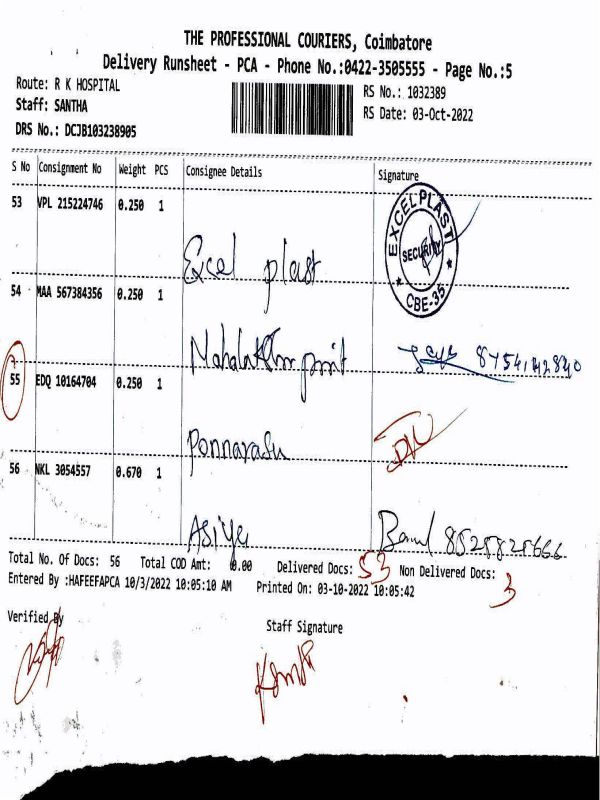 THE PROFESSIONAL COURIERS, Coimbatore
Delivery Runsheet - PCA - Phone No.:0422-3505555 - Page No.:5
Route: R K HOSPITAL
RS No.: 1032389
Staff: SANTHA
RS Date: 03-Oct-2022
DRS No.: DCJB103238905
S No Consignment No Weight PCS Consignee Details Signature
53 VPL 215224746 0.250 1
EXCELPLAST
SECURITY
CBE-35
Excel plast
54 MAA 567384356 0.250 1
Mahalakshmi print
55 EDQ 10164704 0.250 1
Ponnarasu
56 NKL 3054557 0.670 1
Asiya
Total No. Of Docs: 56 Total COD Amt: 0.00 Delivered Docs: 53 Non Delivered Docs: 3
Entered By :HAFEEFAPCA 10/3/2022 10:05:10 AM Printed On: 03-10-2022 10:05:42
Verified By
Staff Signature